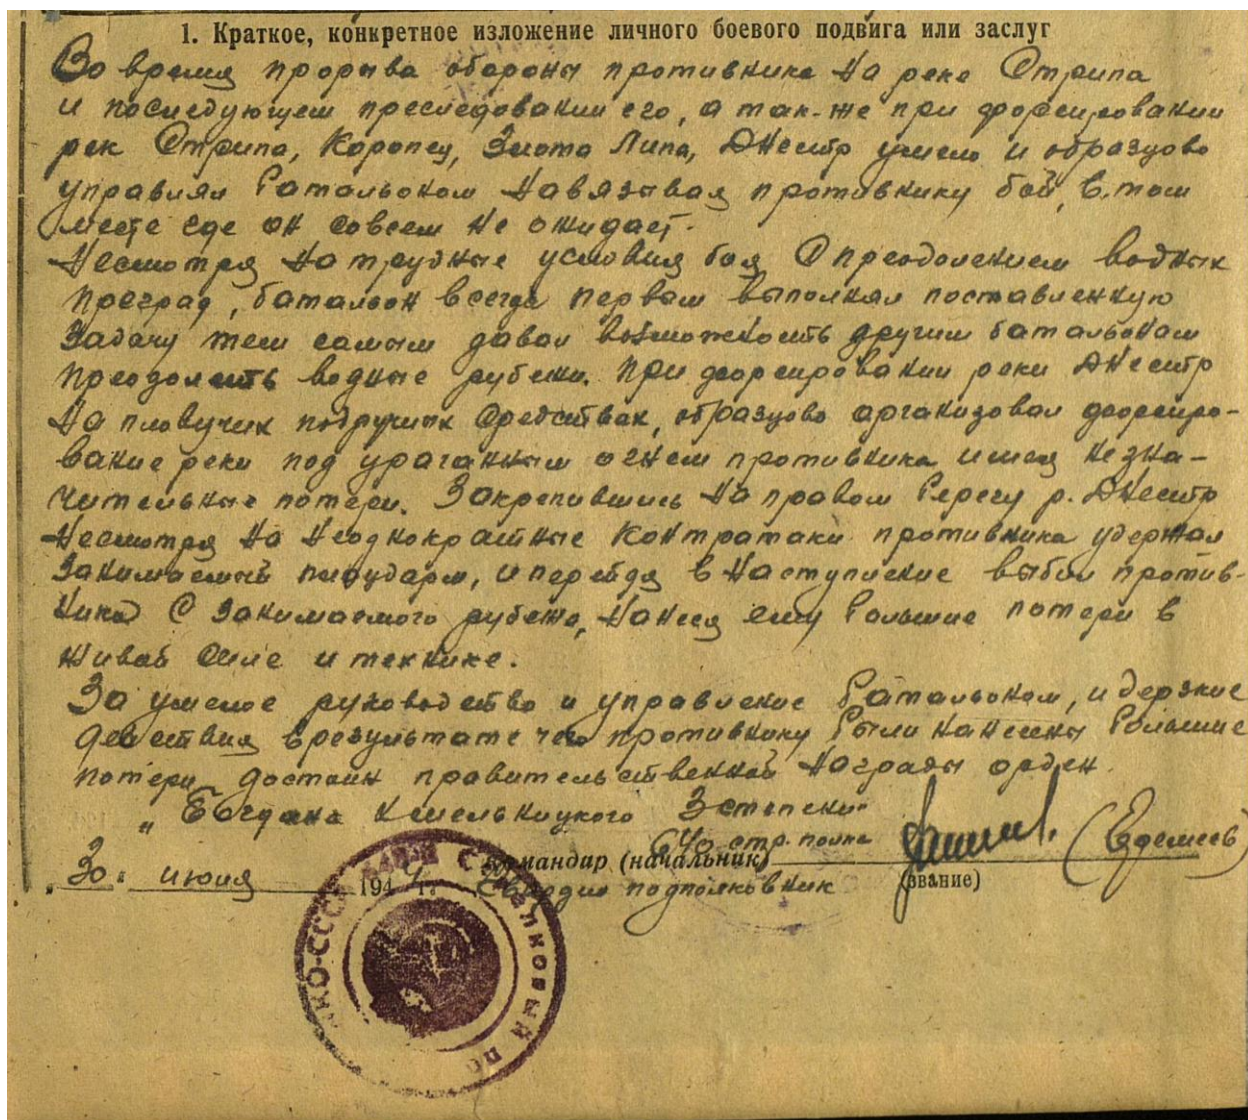 1. Краткое, конкретное изложение личного боевого подвига или заслуг
Во время прорыва обороны противника на реке Стрипа
и последующем преследовании его, а так-же при форсировании
рек Стрипа, Коропец, Злота Липа, Днестр умело и образцово
управлял батальоном навязывая противнику бой, в том
месте где он совсем не ожидает.
Несмотря на трудные условия боя с преодолением водных
преград, батальон всегда первым выполнял поставленную
задачу тем самым давал возможность другим батальонам
преодолеть водные рубежи. При форсировании реки Днестр
на пловучих подручных средствах, образцово организовал форсиро-
вание реки под ураганным огнем противника имея незна-
чительные потери. Закрепившись на правом берегу р. Днестр
несмотря на неоднократные контратаки противника удержал
занимаемый плацдарм, и перейдя в наступление выбил против-
ника с занимаемого рубежа, нанеся ему большие потери в
живой силе и технике.
За умелое руководство и управление батальоном, и дерзкие
действия в результате чего противнику были нанесены большие
потери достоин правительственной награды орден
„Богдана Хмельницкого 3 степени"
640 стр. полка
Командир (начальник) (Едемеев)
„30" июля 1944 г. Гвардии подполковник (звание)
НКО-СССР СТРЕЛКОВЫЙ ПО